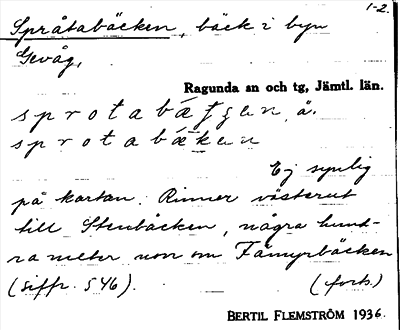 1-2.
Språtabäcken, bäck i byn
Gevåg,
Ragunda sn och tg, Jämtl. län.
sprotabæʃʃɛn, å.
sprotabækɛn
Ej synlig
på kartan. Rinner västerut
till Stenbäcken, några hund-
ra meter norr om Tåmyrbäcken
(siffr. 546).
(forts.)
BERTIL FLEMSTRÖM 1936.